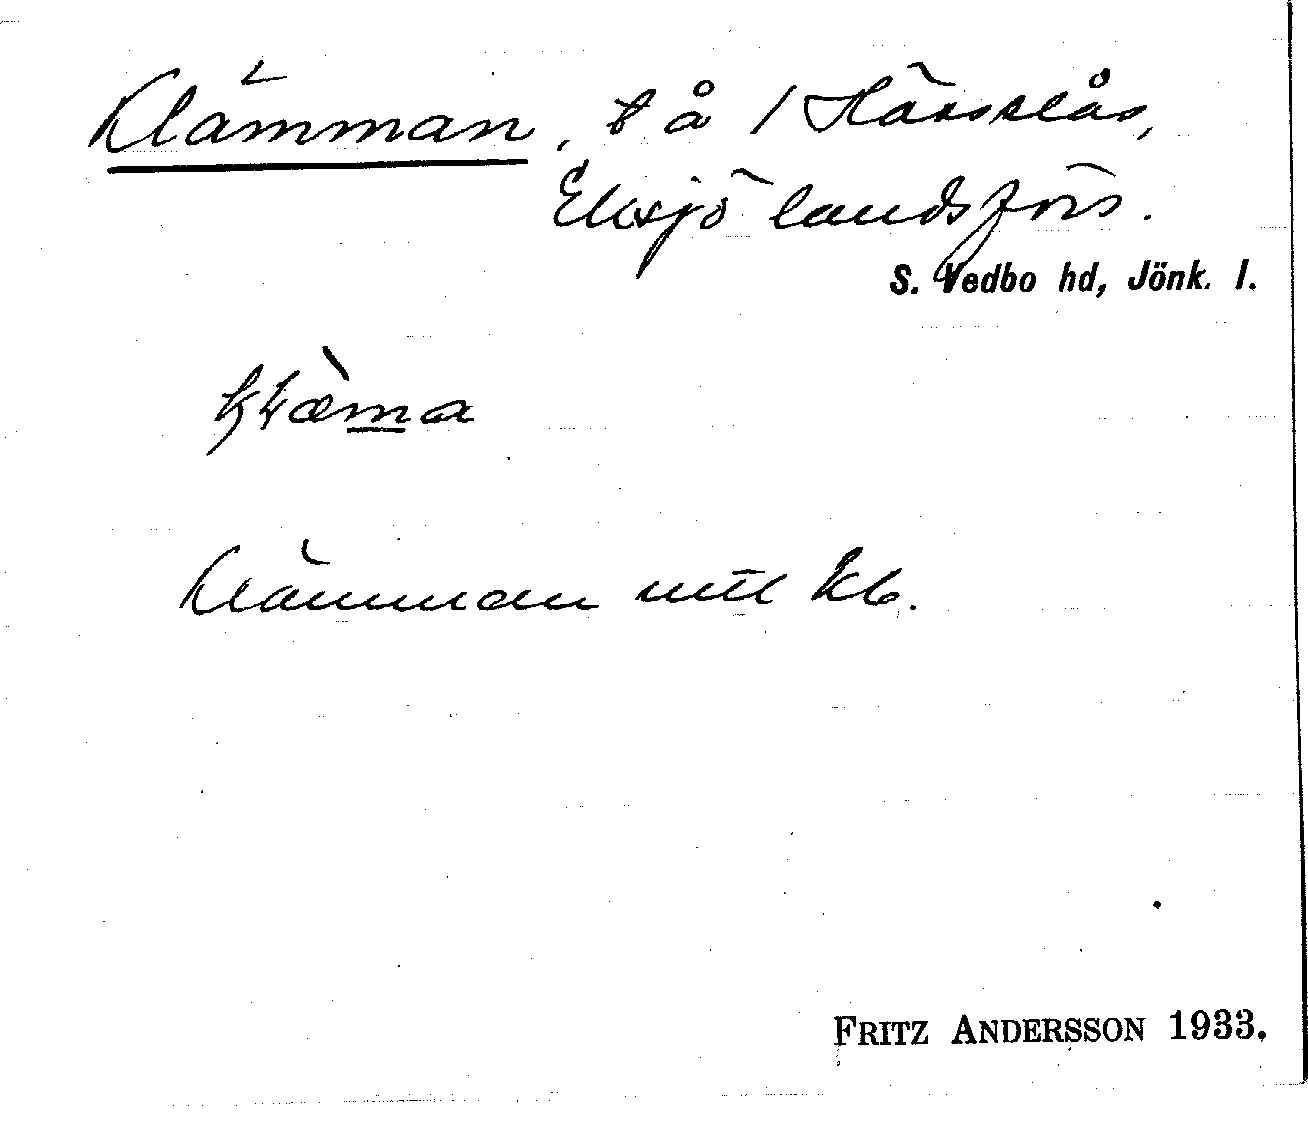 Klämman, t å 1 Härsnås,
Eksjö landsförs.
S. Vedbo hd, Jönk. l.
klæma
Klämman utt kb.
FRITZ ANDERSSON 1933.